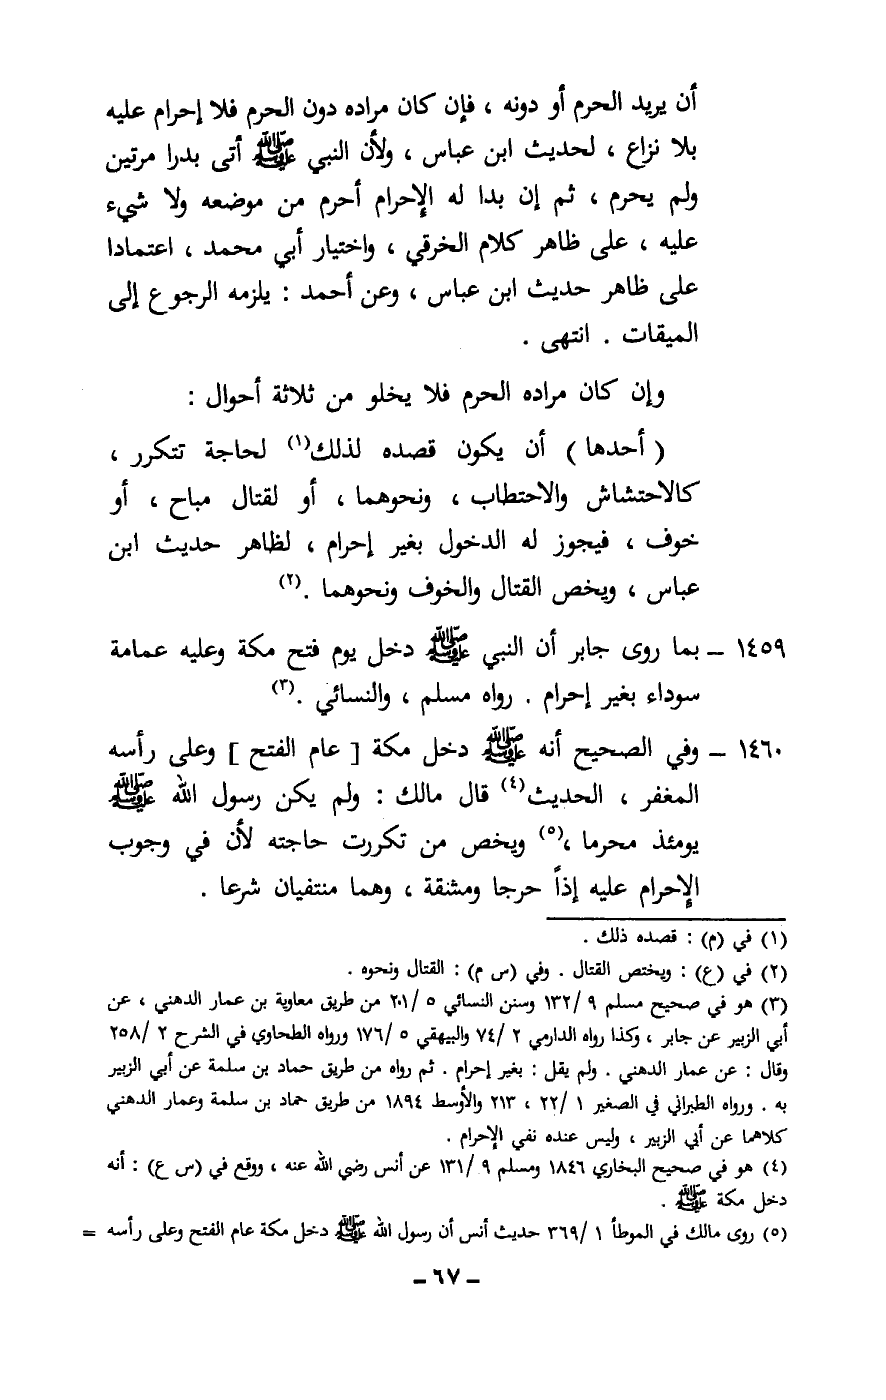 أن يريد الحرم أو دونه ، فإن كان مراده دون الحرم فلا إحرام عليه
بلا نزاع ، لحديث ابن عباس ، ولأن النبي ﷺ أتى بدرا مرتين
ولم يحرم ، ثم إن بدا له الإحرام أحرم من موضعه ولا شيء
عليه ، على ظاهر كلام الخرقي ، واختيار أبي محمد ، اعتمادا
على ظاهر حديث ابن عباس ، وعن أحمد : يلزمه الرجوع إلى
الميقات . انتهى .
وإن كان مراده الحرم فلا يخلو من ثلاثة أحوال :
( أحدها ) أن يكون قصده لذلك(١) لحاجة تتكرر ،
كالاحتشاش والاحتطاب ، ونحوهما ، أو لقتال مباح ، أو
خوف ، فيجوز له الدخول بغير إحرام ، لظاهر حديث ابن
عباس ، ويخص القتال والخوف ونحوهما .(٢)
١٤٥٩ – بما روى جابر أن النبي ﷺ دخل يوم فتح مكة وعليه عمامة
سوداء بغير إحرام . رواه مسلم ، والنسائي .(٣)
١٤٦٠ – وفي الصحيح أنه ﷺ دخل مكة [ عام الفتح ] وعلى رأسه
المغفر ، الحديث(٤) قال مالك : ولم يكن رسول الله ﷺ
يومئذ محرما ،(٥) ويخص من تكررت حاجته لأن في وجوب
الإحرام عليه إذاً حرجا ومشقة ، وهما منتفيان شرعا .
(١) في (م) : قصده ذلك .
(٢) في (ع) : ويختص القتال . وفي (س م) : القتال ونحوه .
(٣) هو في صحيح مسلم ٩ /١٣٢ وسنن النسائي ٥ /٢٠١ من طريق معاوية بن عمار الدهني ، عن
أبي الزبير عن جابر ، وكذا رواه الدارمي ٢ /٧٤ والبيهقي ٥ /١٧٦ ورواه الطحاوي في الشرح ٢ /٢٥٨
وقال : عن عمار الدهني . ولم يقل : بغير إحرام . ثم رواه من طريق حماد بن سلمة عن أبي الزبير
به . ورواه الطبراني في الصغير ١ /٢٢ ، ٢١٣ والأوسط ١٨٩٤ من طريق حماد بن سلمة وعمار الدهني
كلاهما عن أبي الزبير ، وليس عنده نفي الإحرام .
(٤) هو في صحيح البخاري ١٨٤٦ ومسلم ٩ /١٣١ عن أنس رضي الله عنه ، ووقع في (س ع) : أنه
دخل مكة ﷺ .
(٥) روى مالك في الموطأ ١ /٣٦٩ حديث أنس أن رسول الله ﷺ دخل مكة عام الفتح وعلى رأسه =
– ٦٧ –